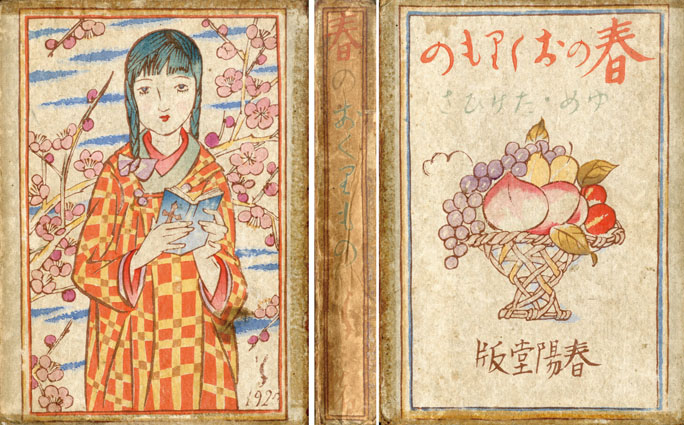 春のおくりもの
ゆめ・たけひさ
春陽堂版
春のおくりもの